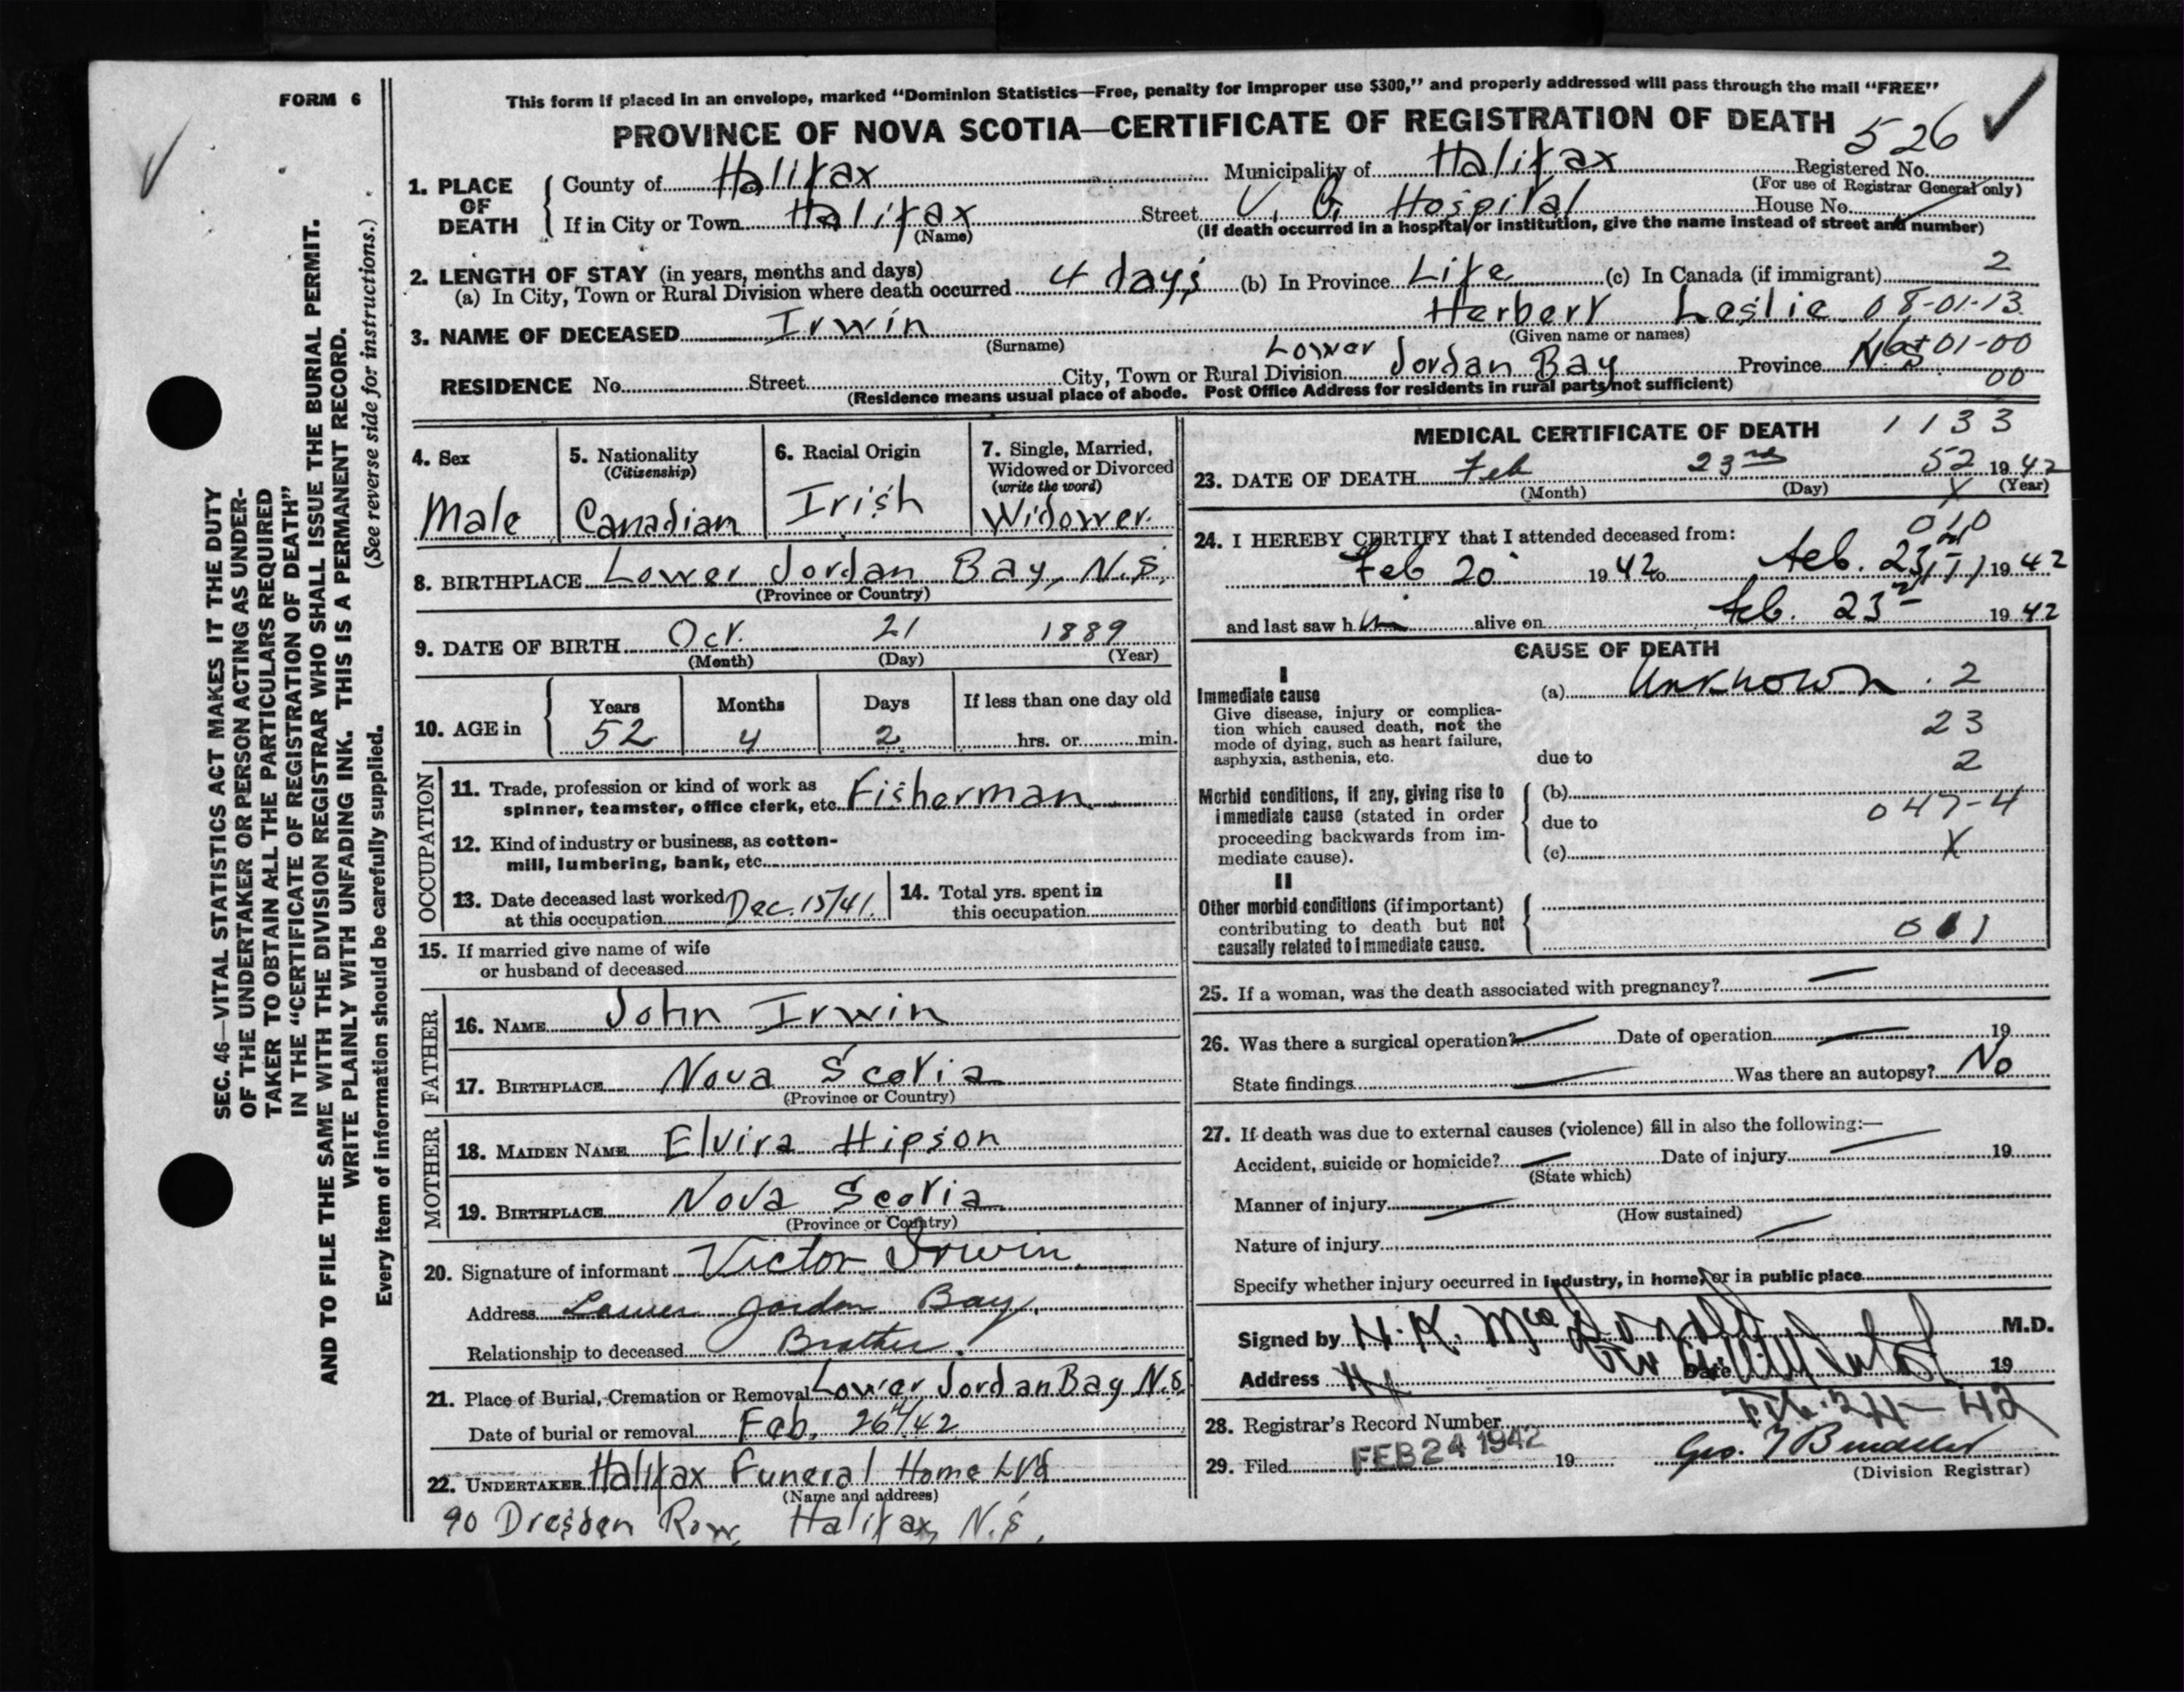 FORM 6
This form if placed in an envelope, marked "Dominion Statistics—Free, penalty for improper use $300," and properly addressed will pass through the mail "FREE"
PROVINCE OF NOVA SCOTIA—CERTIFICATE OF REGISTRATION OF DEATH
526
1. PLACE OF DEATH
County of Halifax Municipality of Halifax Registered No.
(For use of Registrar General only)
If in City or Town Halifax Street V. G. Hospital House No.
(Name) (If death occurred in a hospital or institution, give the name instead of street and number)
2. LENGTH OF STAY (in years, months and days)
(a) In City, Town or Rural Division where death occurred 4 days (b) In Province Life (c) In Canada (if immigrant) 2
3. NAME OF DECEASED Irwin Herbert Leslie 08-01-13
(Surname) (Given name or names)
RESIDENCE No. Street City, Town or Rural Division Lower Jordan Bay Province N.S. 01-00
00
(Residence means usual place of abode. Post Office Address for residents in rural parts not sufficient)
4. Sex
Male
5. Nationality
(Citizenship)
Canadian
6. Racial Origin
Irish
7. Single, Married, Widowed or Divorced
(write the word)
Widower
8. BIRTHPLACE Lower Jordan Bay, N.S.
(Province or Country)
9. DATE OF BIRTH Oct. 21 1889
(Month) (Day) (Year)
10. AGE in
Years Months Days If less than one day old
52 4 2 hrs. or min.
OCCUPATION
11. Trade, profession or kind of work as
spinner, teamster, office clerk, etc. Fisherman
12. Kind of industry or business, as cotton-
mill, lumbering, bank, etc.
13. Date deceased last worked
at this occupation Dec. 15/41.
14. Total yrs. spent in
this occupation
15. If married give name of wife
or husband of deceased
FATHER
16. NAME John Irwin
17. BIRTHPLACE Nova Scotia
(Province or Country)
MOTHER
18. MAIDEN NAME Elvira Hipson
19. BIRTHPLACE Nova Scotia
(Province or Country)
20. Signature of informant Victor Irwin.
Address Lower Jordan Bay.
Relationship to deceased Brother.
21. Place of Burial, Cremation or Removal Lower Jordan Bay N.S.
Date of burial or removal Feb. 26th/42
22. UNDERTAKER Halifax Funeral Home Ltd
(Name and address)
90 Dresden Row, Halifax, N.S.
MEDICAL CERTIFICATE OF DEATH 1133
23. DATE OF DEATH Feb 23rd 52 1942
(Month) (Day) (Year)
X
24. I HEREBY CERTIFY that I attended deceased from:
Feb 20 1942 to Feb. 23 1942
and last saw him alive on Feb. 23 1942
CAUSE OF DEATH
I
Immediate cause
Give disease, injury or complica-
tion which caused death, not the
mode of dying, such as heart failure,
asphyxia, asthenia, etc.
(a) Unknown . 2
23
due to 2
Morbid conditions, if any, giving rise to
immediate cause (stated in order
proceeding backwards from im-
mediate cause).
(b)
due to 047-4
(c) X
II
Other morbid conditions (if important)
contributing to death but not
causally related to immediate cause.
25. If a woman, was the death associated with pregnancy? —
26. Was there a surgical operation? — Date of operation — 19
State findings — Was there an autopsy? No
27. If death was due to external causes (violence) fill in also the following:—
Accident, suicide or homicide? — Date of injury — 19
(State which)
Manner of injury —
(How sustained)
Nature of injury —
Specify whether injury occurred in industry, in home, or in public place
Signed by H. K. M.D.
Address Date 19
Feb. 24-42
28. Registrar's Record Number
29. Filed FEB 24 1942 19 Geo.
(Division Registrar)
SEC. 46—VITAL STATISTICS ACT MAKES IT THE DUTY
OF THE UNDERTAKER OR PERSON ACTING AS UNDER-
TAKER TO OBTAIN ALL THE PARTICULARS REQUIRED
IN THE "CERTIFICATE OF REGISTRATION OF DEATH"
AND TO FILE THE SAME WITH THE DIVISION REGISTRAR WHO SHALL ISSUE THE BURIAL PERMIT.
WRITE PLAINLY WITH UNFADING INK. THIS IS A PERMANENT RECORD.
Every item of information should be carefully supplied. (See reverse side for instructions.)